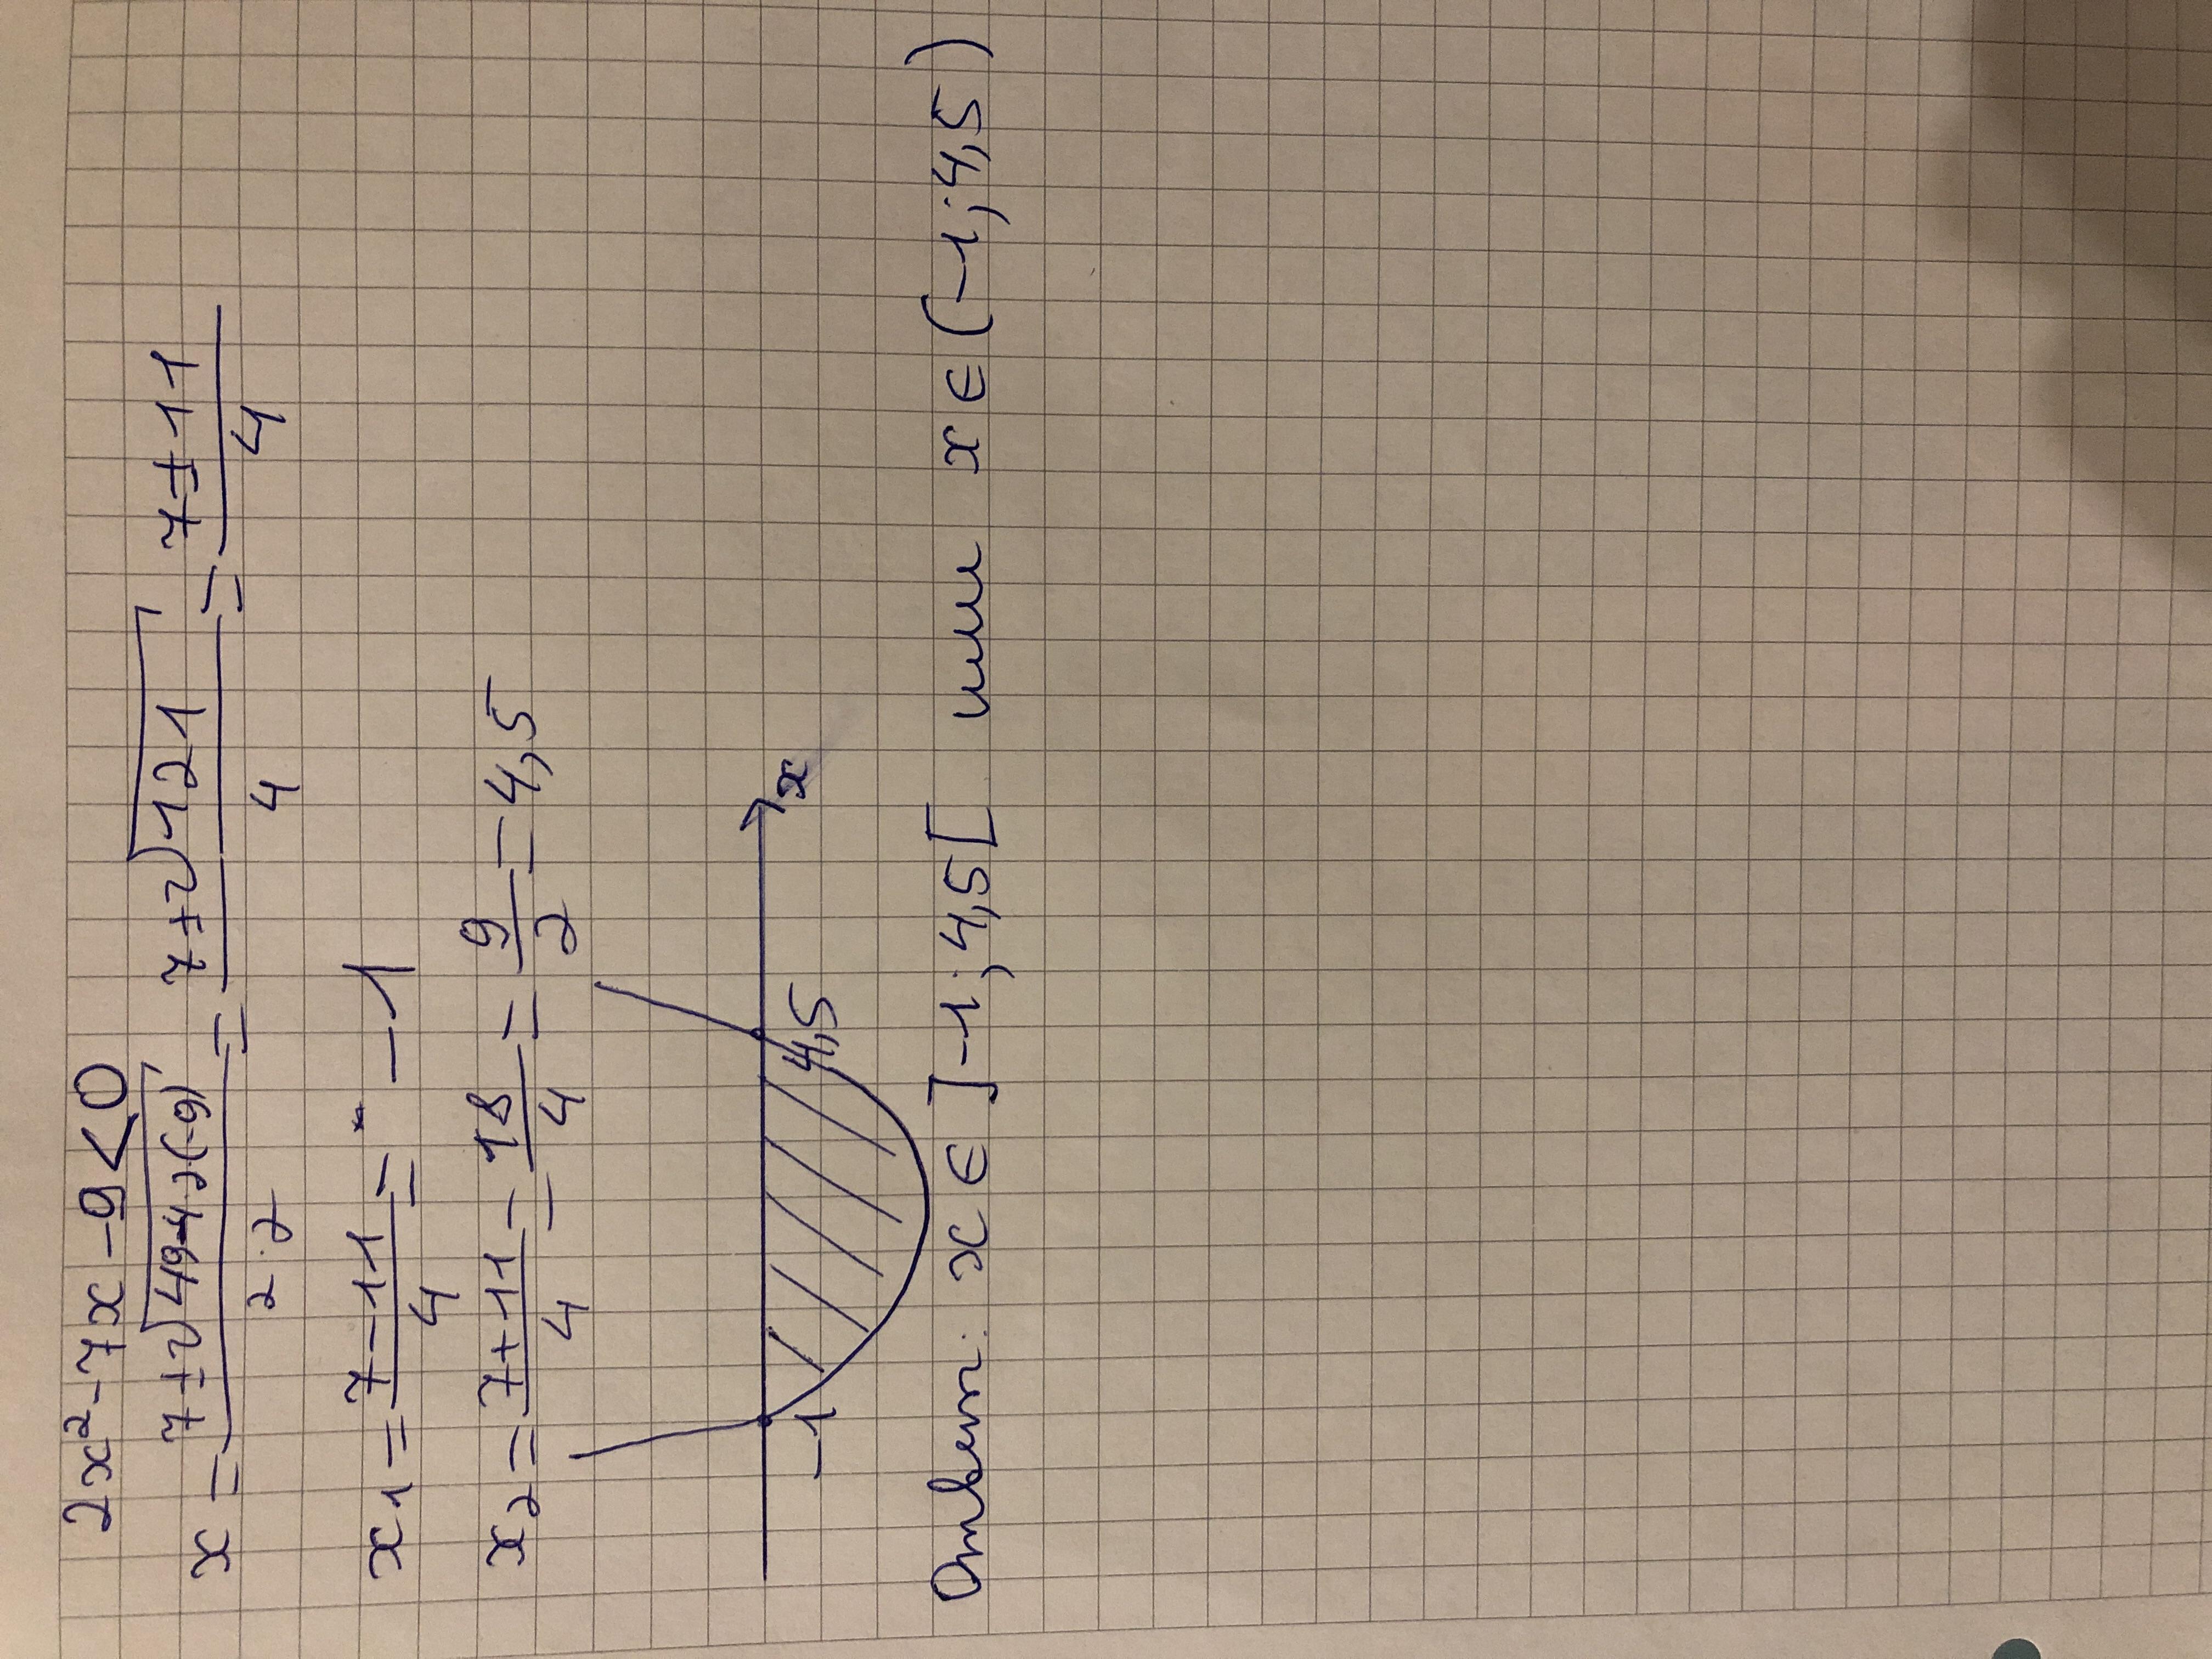 2x² - 7x - 9 < 0
x = (7 ± √(49-4·2(-9))) / (2·2) = (7 ± √121) / 4 = (7 ± 11) / 4
x₁ = (7 - 11) / 4 = -1
x₂ = (7 + 11) / 4 = 18/4 = 9/2 = 4,5
-1 4,5 x
Ответ: x ∈ ]-1; 4,5[ или x ∈ (-1; 4,5)